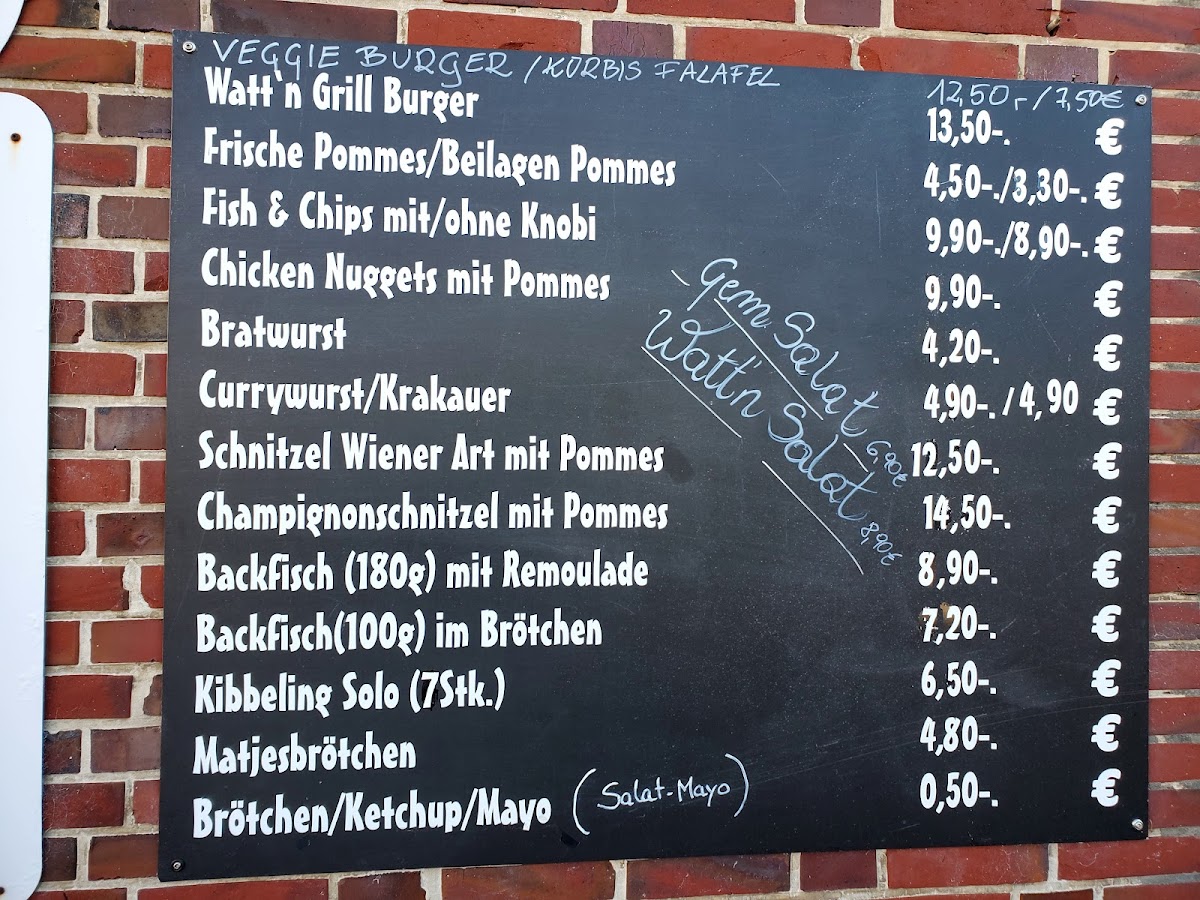 VEGGIE BURGER / KÜRBIS FALAFEL 12,50,-/7,50€
Watt'n Grill Burger 13,50-. €
Frische Pommes/Beilagen Pommes 4,50-./3,30-. €
Fish & Chips mit/ohne Knobi 9,90-./8,90-. €
Chicken Nuggets mit Pommes 9,90-. €
Bratwurst 4,20-. €
Currywurst/Krakauer 4,90-. / 4,90 €
Schnitzel Wiener Art mit Pommes 12,50-. €
Champignonschnitzel mit Pommes 14,50-. €
Backfisch (180g) mit Remoulade 8,90-. €
Backfisch(100g) im Brötchen 7,20-. €
Kibbeling Solo (7Stk.) 6,50-. €
Matjesbrötchen 4,80-. €
Brötchen/Ketchup/Mayo (Salat-Mayo) 0,50-. €
Gem. Salat 6,90€
Watt'n Salat 8,90€